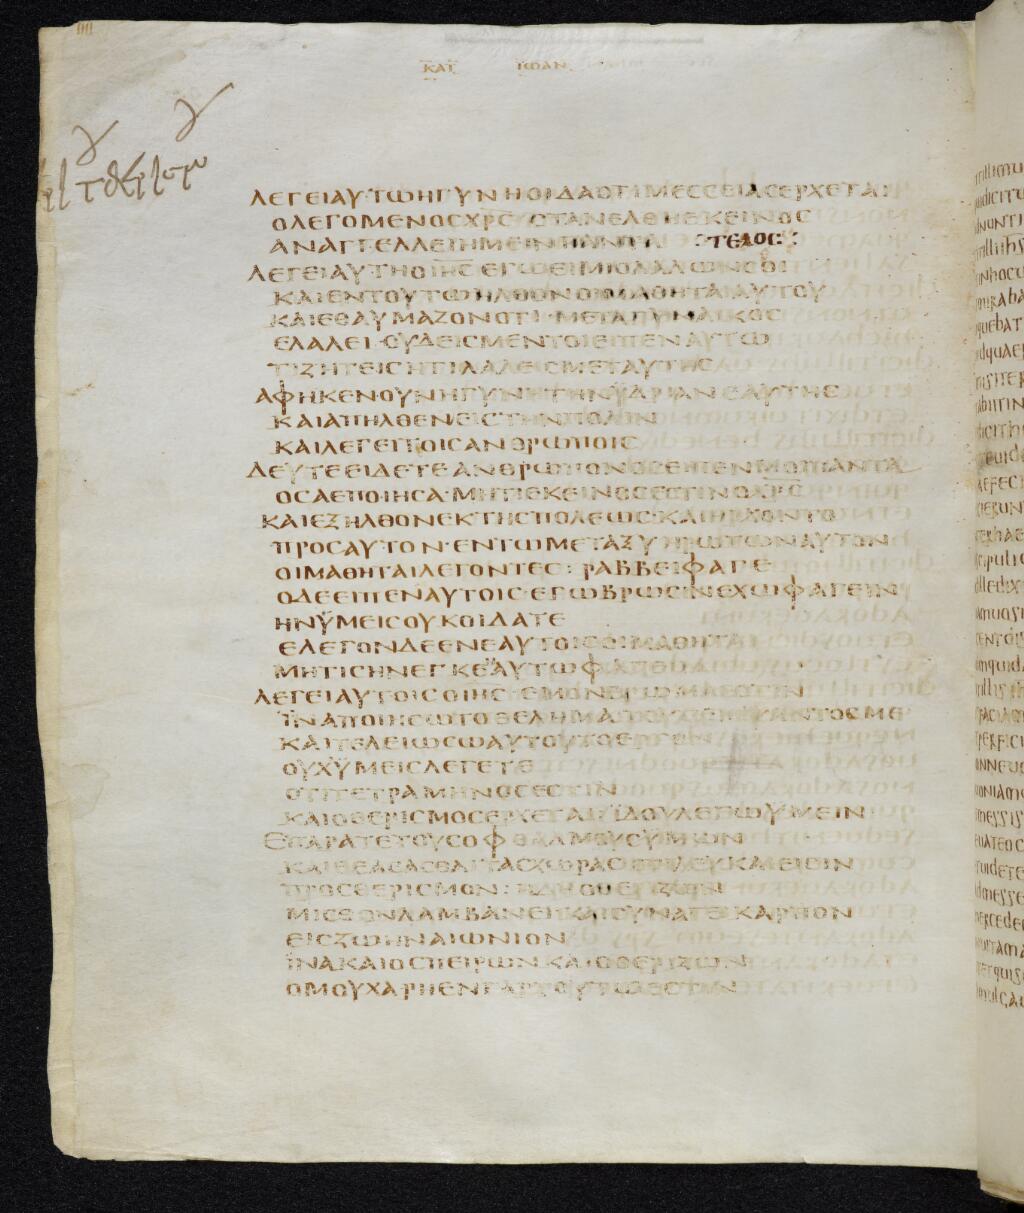 ΚΑΤ ΙΩΑΝ
ΛΕΓΕΙΑΥΤΩΗΓΥΝΗΟΙΔΑΟΤΙΜΕΣΣΕΙΑΣΕΡΧΕΤΑΙ
ΟΛΕΓΟΜΕΝΟΣΧΡΣ ΟΤΑΝΕΛΘΗΕΚΕΙΝΟΣ
ΑΝΑΓΓΕΛΛΕΙΗΜΕΙΝΠΑΝΤΑ ΤΕΛΟΣ
ΛΕΓΕΙΑΥΤΗΟΙΗΣ ΕΓΩΕΙΜΙΟΛΑΛΩΝΣΟΙ
ΚΑΙΕΝΤΟΥΤΩΗΛΘΟΝΟΙΜΑΘΗΤΑΙΑΥΤΟΥ
ΚΑΙΕΘΑΥΜΑΖΟΝΟΤΙ·ΜΕΤΑΓΥΝΑΙΚΟΣ
ΕΛΑΛΕΙ·ΟΥΔΕΙΣΜΕΝΤΟΙΕΙΠΕΝΑΥΤΩ
ΤΙΖΗΤΕΙΣΗΤΙΛΑΛΕΙΣΜΕΤΑΥΤΗΣ
ΑΦΗΚΕΝΟΥΝΗΓΥΝΗΤΗΝΥΔΡΙΑΝΕΑΥΤΗΣ
ΚΑΙΑΠΗΛΘΕΝΕΙΣΤΗΝΠΟΛΙΝ
ΚΑΙΛΕΓΕΙΤΟΙΣΑΝΘΡΩΠΟΙΣ
ΔΕΥΤΕΕΙΔΕΤΕΑΝΘΡΩΠΟΝΟΣΕΙΠΕΝΜΟΙΠΑΝΤΑ
ΟΣΑΕΠΟΙΗΣΑ·ΜΗΤΙΕΚΕΙΝΟΣΕΣΤΙΝΟΧΡΣ
ΚΑΙΕΞΗΛΘΟΝΕΚΤΗΣΠΟΛΕΩΣ·ΚΑΙΗΡΧΟΝΤΟ
ΠΡΟΣΑΥΤΟΝ·ΕΝΤΩΜΕΤΑΞΥΗΡΩΤΩΝΑΥΤΟΝ
ΟΙΜΑΘΗΤΑΙΛΕΓΟΝΤΕΣ: ΡΑΒΒΕΙΦΑΓΕ
ΟΔΕΕΙΠΕΝΑΥΤΟΙΣ·ΕΓΩΒΡΩΣΙΝΕΧΩΦΑΓΕΙΝ
ΗΝΫΜΕΙΣΟΥΚΟΙΔΑΤΕ
ΕΛΕΓΟΝΔΕΕΝΕΑΥΤΟΙΣΟΙΜΑΘΗΤΑΙ
ΜΗΤΙΣΗΝΕΓΚΕΑΥΤΩΦ
ΛΕΓΕΙΑΥΤΟΙΣΟΙΗΣ·ΕΜΟΝΒΡΩΜΑΕΣΤΙΝ
ΪΝΑΠΟΙΗΣΩΤΟΘΕΛΗΜΑΤΟΥΠΕΜΨΑΝΤΟΣΜΕ
ΚΑΙΤΕΛΕΙΩΣΩΑΥΤΟΥΤΟΕΡΓΟΝ
ΟΥΧΫΜΕΙΣΛΕΓΕΤΕ
ΟΤΙΤΕΤΡΑΜΗΝΟΣΕΣΤΙΝ
ΚΑΙΟΘΕΡΙΣΜΟΣΕΡΧΕΤΑΙ: ΪΔΟΥΛΕΓΩΫΜΕΙΝ
ΕΠΑΡΑΤΕΤΟΥΣΟΦΘΑΛΜΟΥΣΥΜΩΝ
ΚΑΙΘΕΑΣΑΣΘΑΙΤΑΣΧΩΡΑΣΟΤΙΛΕΥΚΑΙΕΙΣΙΝ
ΠΡΟΣΘΕΡΙΣΜΟΝ: ΗΔΗΟΘΕΡΙΖΩΝ
ΜΙΣΘΟΝΛΑΜΒΑΝΕΙ·ΚΑΙΣΥΝΑΓΕΙΚΑΡΠΟΝ
ΕΙΣΖΩΗΝΑΙΩΝΙΟΝ
ΪΝΑΚΑΙΟΣΠΕΙΡΩΝΚΑΙΟΘΕΡΙΖΩΝ
ΟΜΟΥΧΑΡΗΕΝΓΑΡΤΟΥΤΩΕΣΤΙΝ